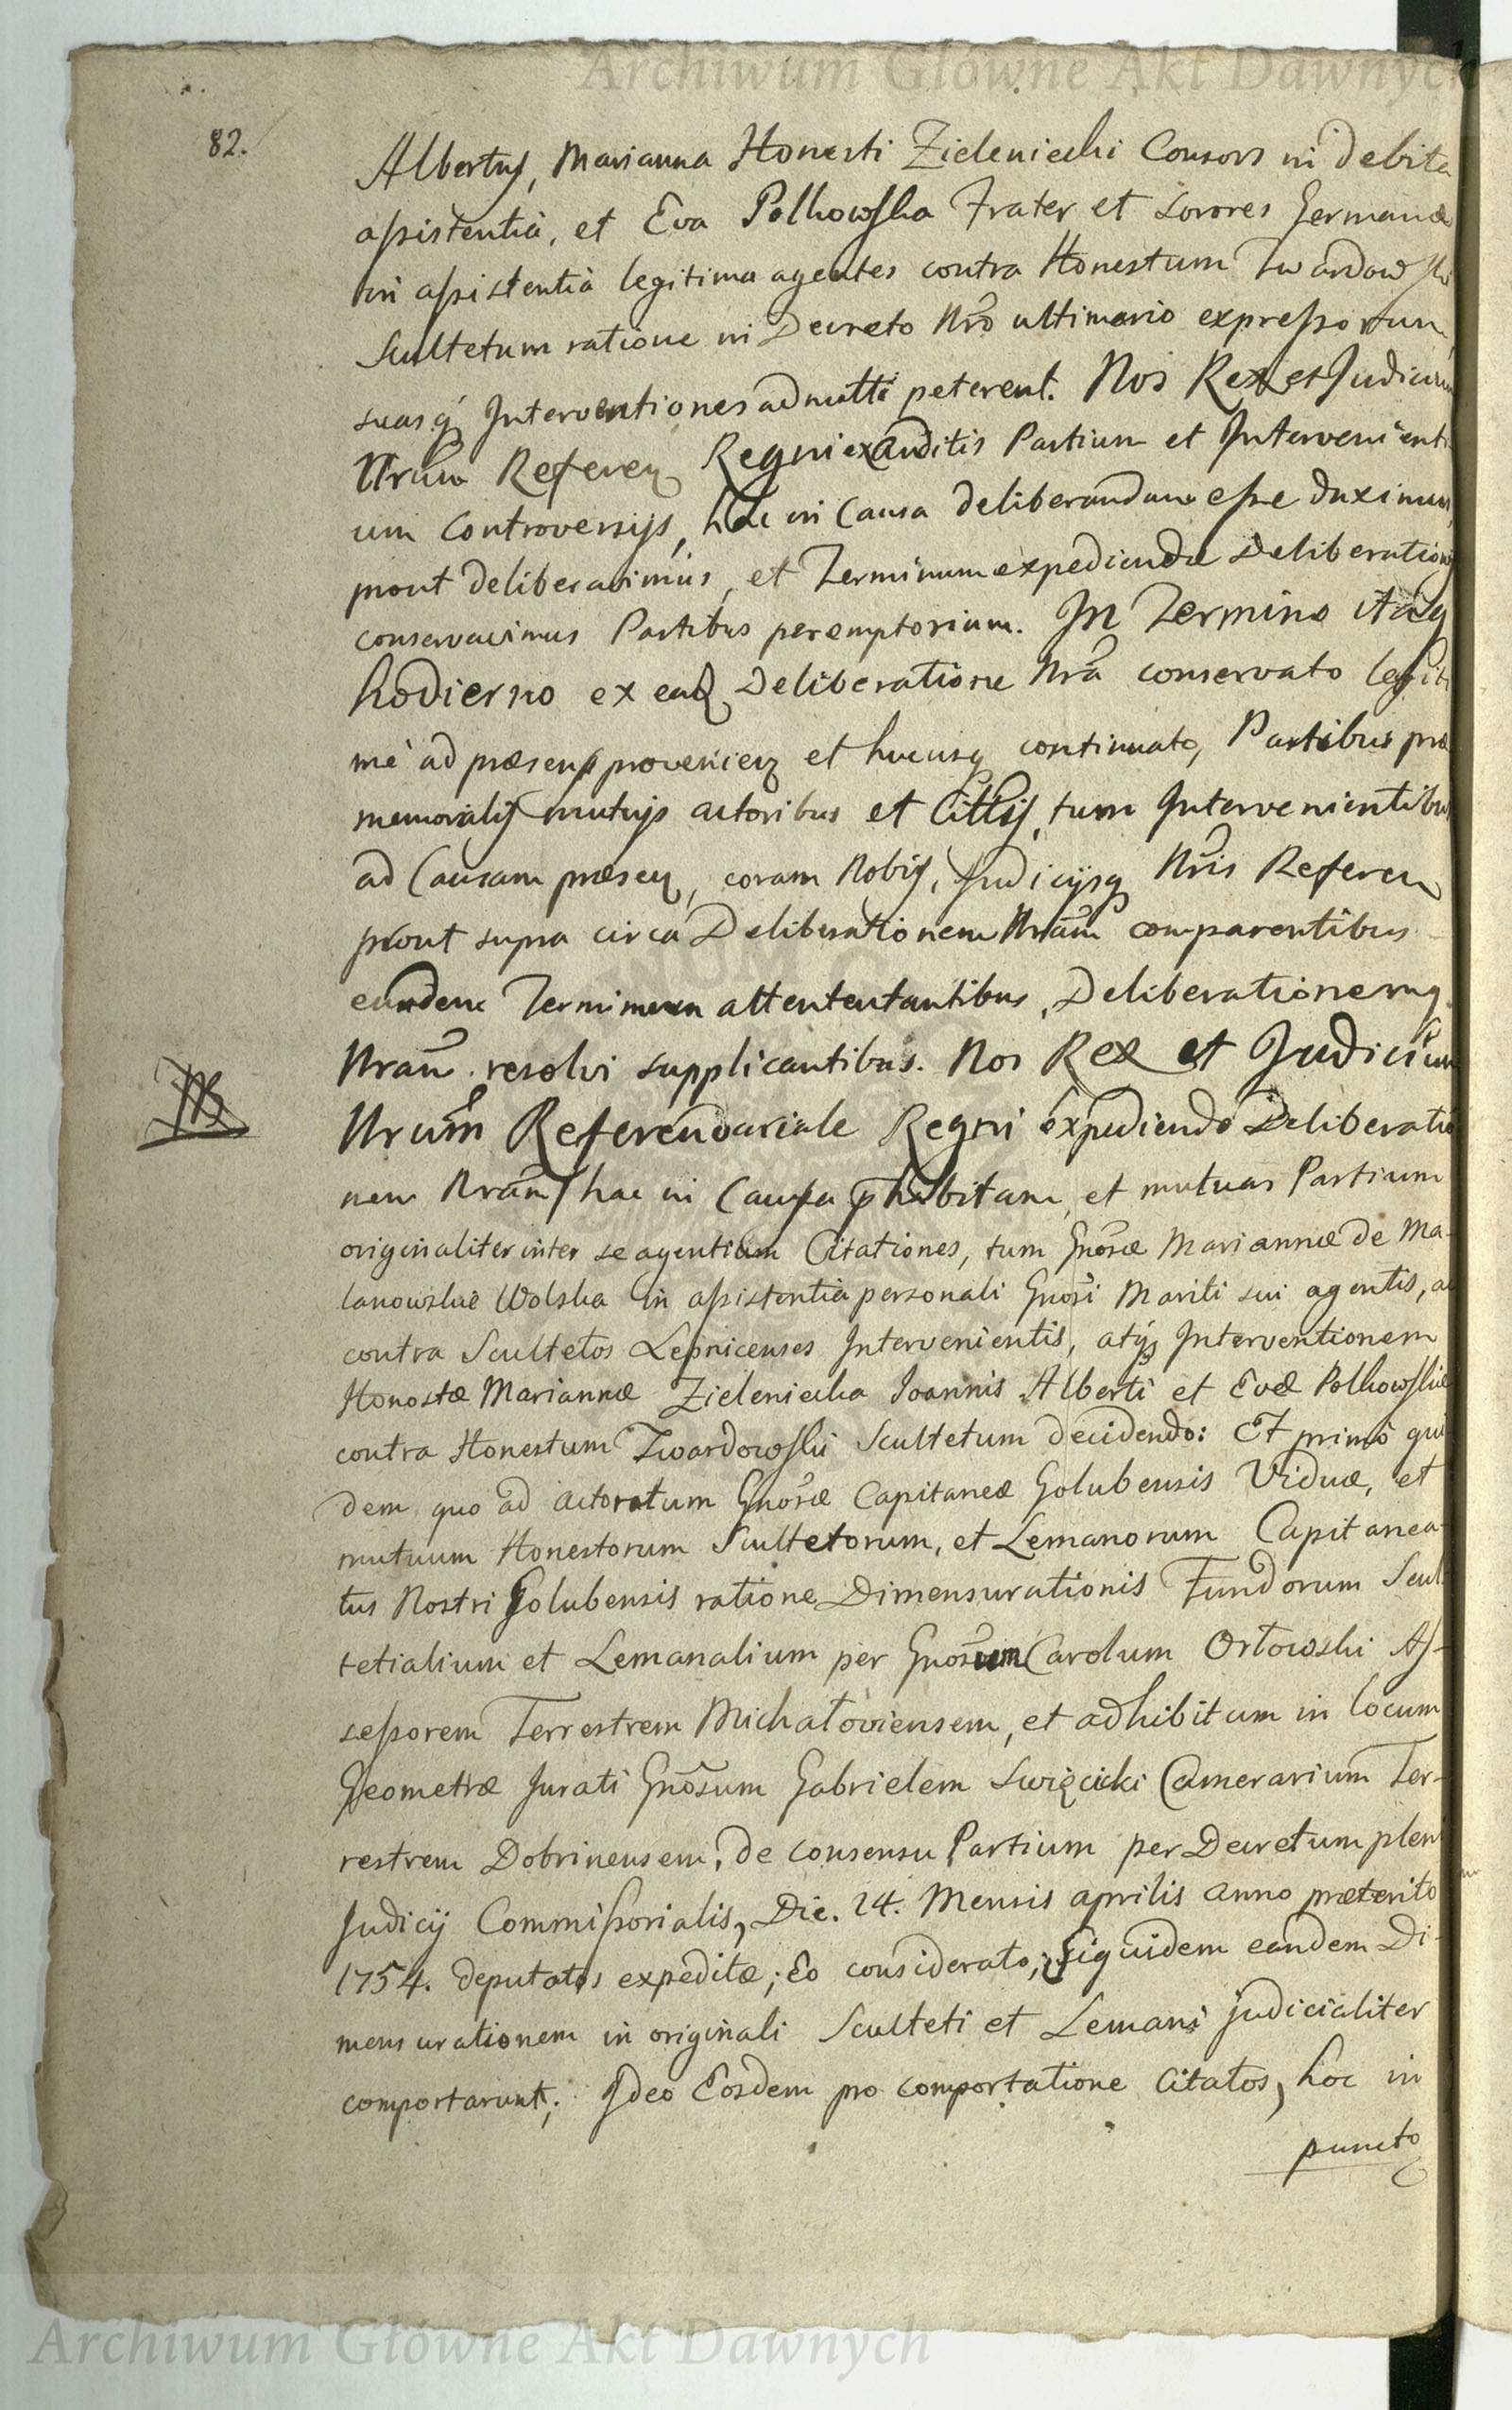 Archiwum Główne Akt Dawnych
82.
Albertus, Marianna Honesti Zieleniecki Consors in debita
assistentiâ, et Eva Polkowska Frater et Sorores Germanæ
in assistentiâ legitima agentes contra Honestum Twardowski
Scultetum ratione in Decreto Nrō ultimario expressorum,
suasq; Interventiones admitti peterent. Nos Rex et Judicium
Nrum Referen Regni exauditis Partium et Intervenienti
um Controversijs, hac in Causa deliberandum esse duximus,
prout deliberavimus, et Terminum expediendæ Deliberationis
conservavimus Partibus peremptorium. In Termino itaq
hodierno ex ead Deliberatione Nrā conservato legiti
mè ad præsens provenien et hucusq continuato, Partibus præ
memoratis mutuis actoribus et Cittis, tum Intervenientibus
ad Causam præsen, coram Nobis, Judicijsq Nris Referen
prout supra circa Deliberationem Nram comparentibus
eundem Terminum attentantibus, Deliberationemq
Nram resolvi supplicantibus. Nos Rex et Judicium
Nrum Referendariale Regni expediendo Deliberatio
nem Nram hac in Causa phabitam, et mutuas Partium
originaliter inter se agentium Citationes, tum Gnosæ Mariannæ de Ma-
lanowskie Wolska in assistentia personali Gnosi Mariti sui agentis, ac
contra Scultetos Lepnicenses Intervenientis, atq Interventionem
Honestæ Mariannæ Zieleniecka Joannis Alberti et Evæ Polkowskie
contra Honestum Twardowski Scultetum decidendo: Et primò qui
dem quo ad actoratum Gnosæ Capitaneæ Golubensis Viduæ, et
mutuum Honestorum Scultetorum, et Lemanorum Capitanea-
tus Nostri Golubensis ratione Dimensurationis Fundorum Scul
tetialium et Lemanalium per Gnosum Carolum Orłowski As-
sessorem Terrestrem Michałoviensem, et adhibitum in locum
Geometræ Jurati Gnosum Gabrielem Swięcicki Camerarium Ter-
restrem Dobrinensem, de consensu Partium per Decretum pleni
Judicij Commissorialis, Die. 24. Mensis aprilis anno præterito
1754. deputatos expeditæ; Eo considerato, siquidem eandem Di-
mensurationem in originali Sculteti et Lemani judicialiter
comportarunt; Ideo Eosdem pro comportatione Citatos, hoc in
puncto
Archiwum Główne Akt Dawnych